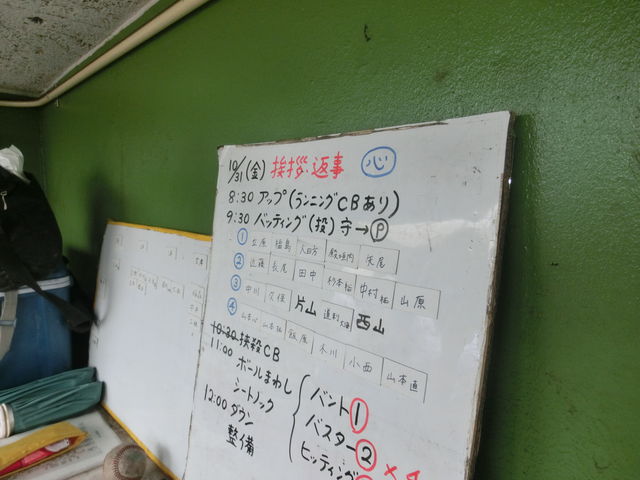 10/31(金) 挨拶・返事 心
8:30 アップ(ランニングCBあり)
9:30 バッティング(投)守→P
① 立原 福島 大日方 飯垣内 矢尾
② 近藤 長尾 田中 杉本裕 中村裕 山原
③ 中川 久保 片山 進村大海 西山
④ 山本心 山本拓 飯原 木川 小西 山本直
10:30 挟殺CB
11:00 ボールまわし
シートノック
12:00 ダウン
整備
バント①
バスター②
ヒッティング